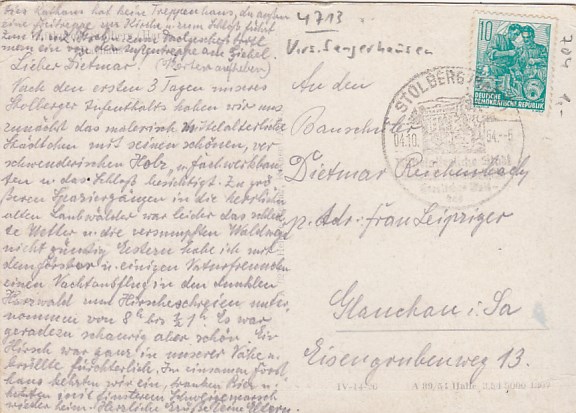 Dies Rathaus hat kein Treppenhaus, da außen
eine Freitreppe zur Kirche u. zum Schloß führt
man ein von dem
Lieber Dietmar! (Karten aufheben)
Nach den ersten 3 Tagen unseres
Stolberger Aufenthalts haben wir uns
zunächst das malerisch mittelalterliche
Städtchen mit seinen schönen, ver-
schwenderischen Holz u. Fachwerkbau-
ten u. das Schloß besichtigt. Zu grö-
ßeren Spaziergängen in die herrlichen
alten Laubwälder war leider das schlech-
te Wetter u. die versumpften Waldwege
nicht günstig. Gestern habe ich mit
dem Förster u. einigen Naturfreunden
einen Nachtausflug in den dunklen
Harzwald zum Hirscheschreien unter-
nommen von 8h bis ½1h. Es war
geradezu schaurig aber schön. Ein
Hirsch war ganz in unserer Nähe u.
brüllte fürchterlich. Im einsamen Forst-
haus kehrten wir ein, tranken Bier u.
wieder heim. Herzliche Grüße Deine Eltern.
4713
Krs. Sangerhausen
704
1,-
10
DEUTSCHE
DEMOKRATISCHE REPUBLIK
STOLBERG (HARZ)
04.10.54.-5
An den
Bauschüler
Dietmar Reichenbach
p. Adr. Frau Leipziger
Glauchau i. Sa
Eisengrubenweg 13.
IV-14-20 A 89/54 Halle